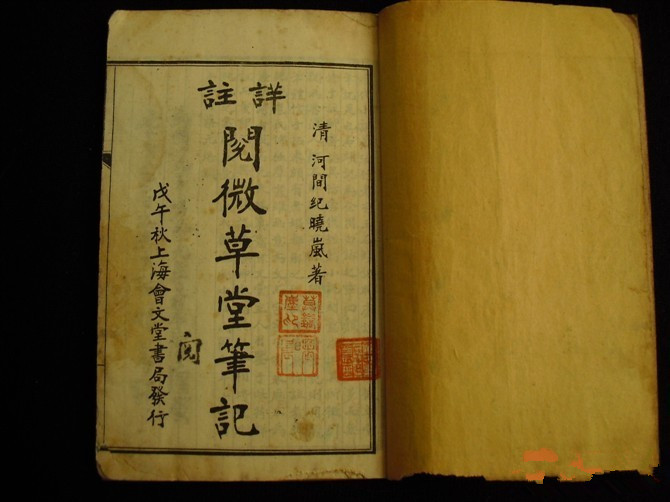 清 河間纪曉嵐著
詳註
閱微草堂筆記
阅
戊午秋上海會文堂書局發行